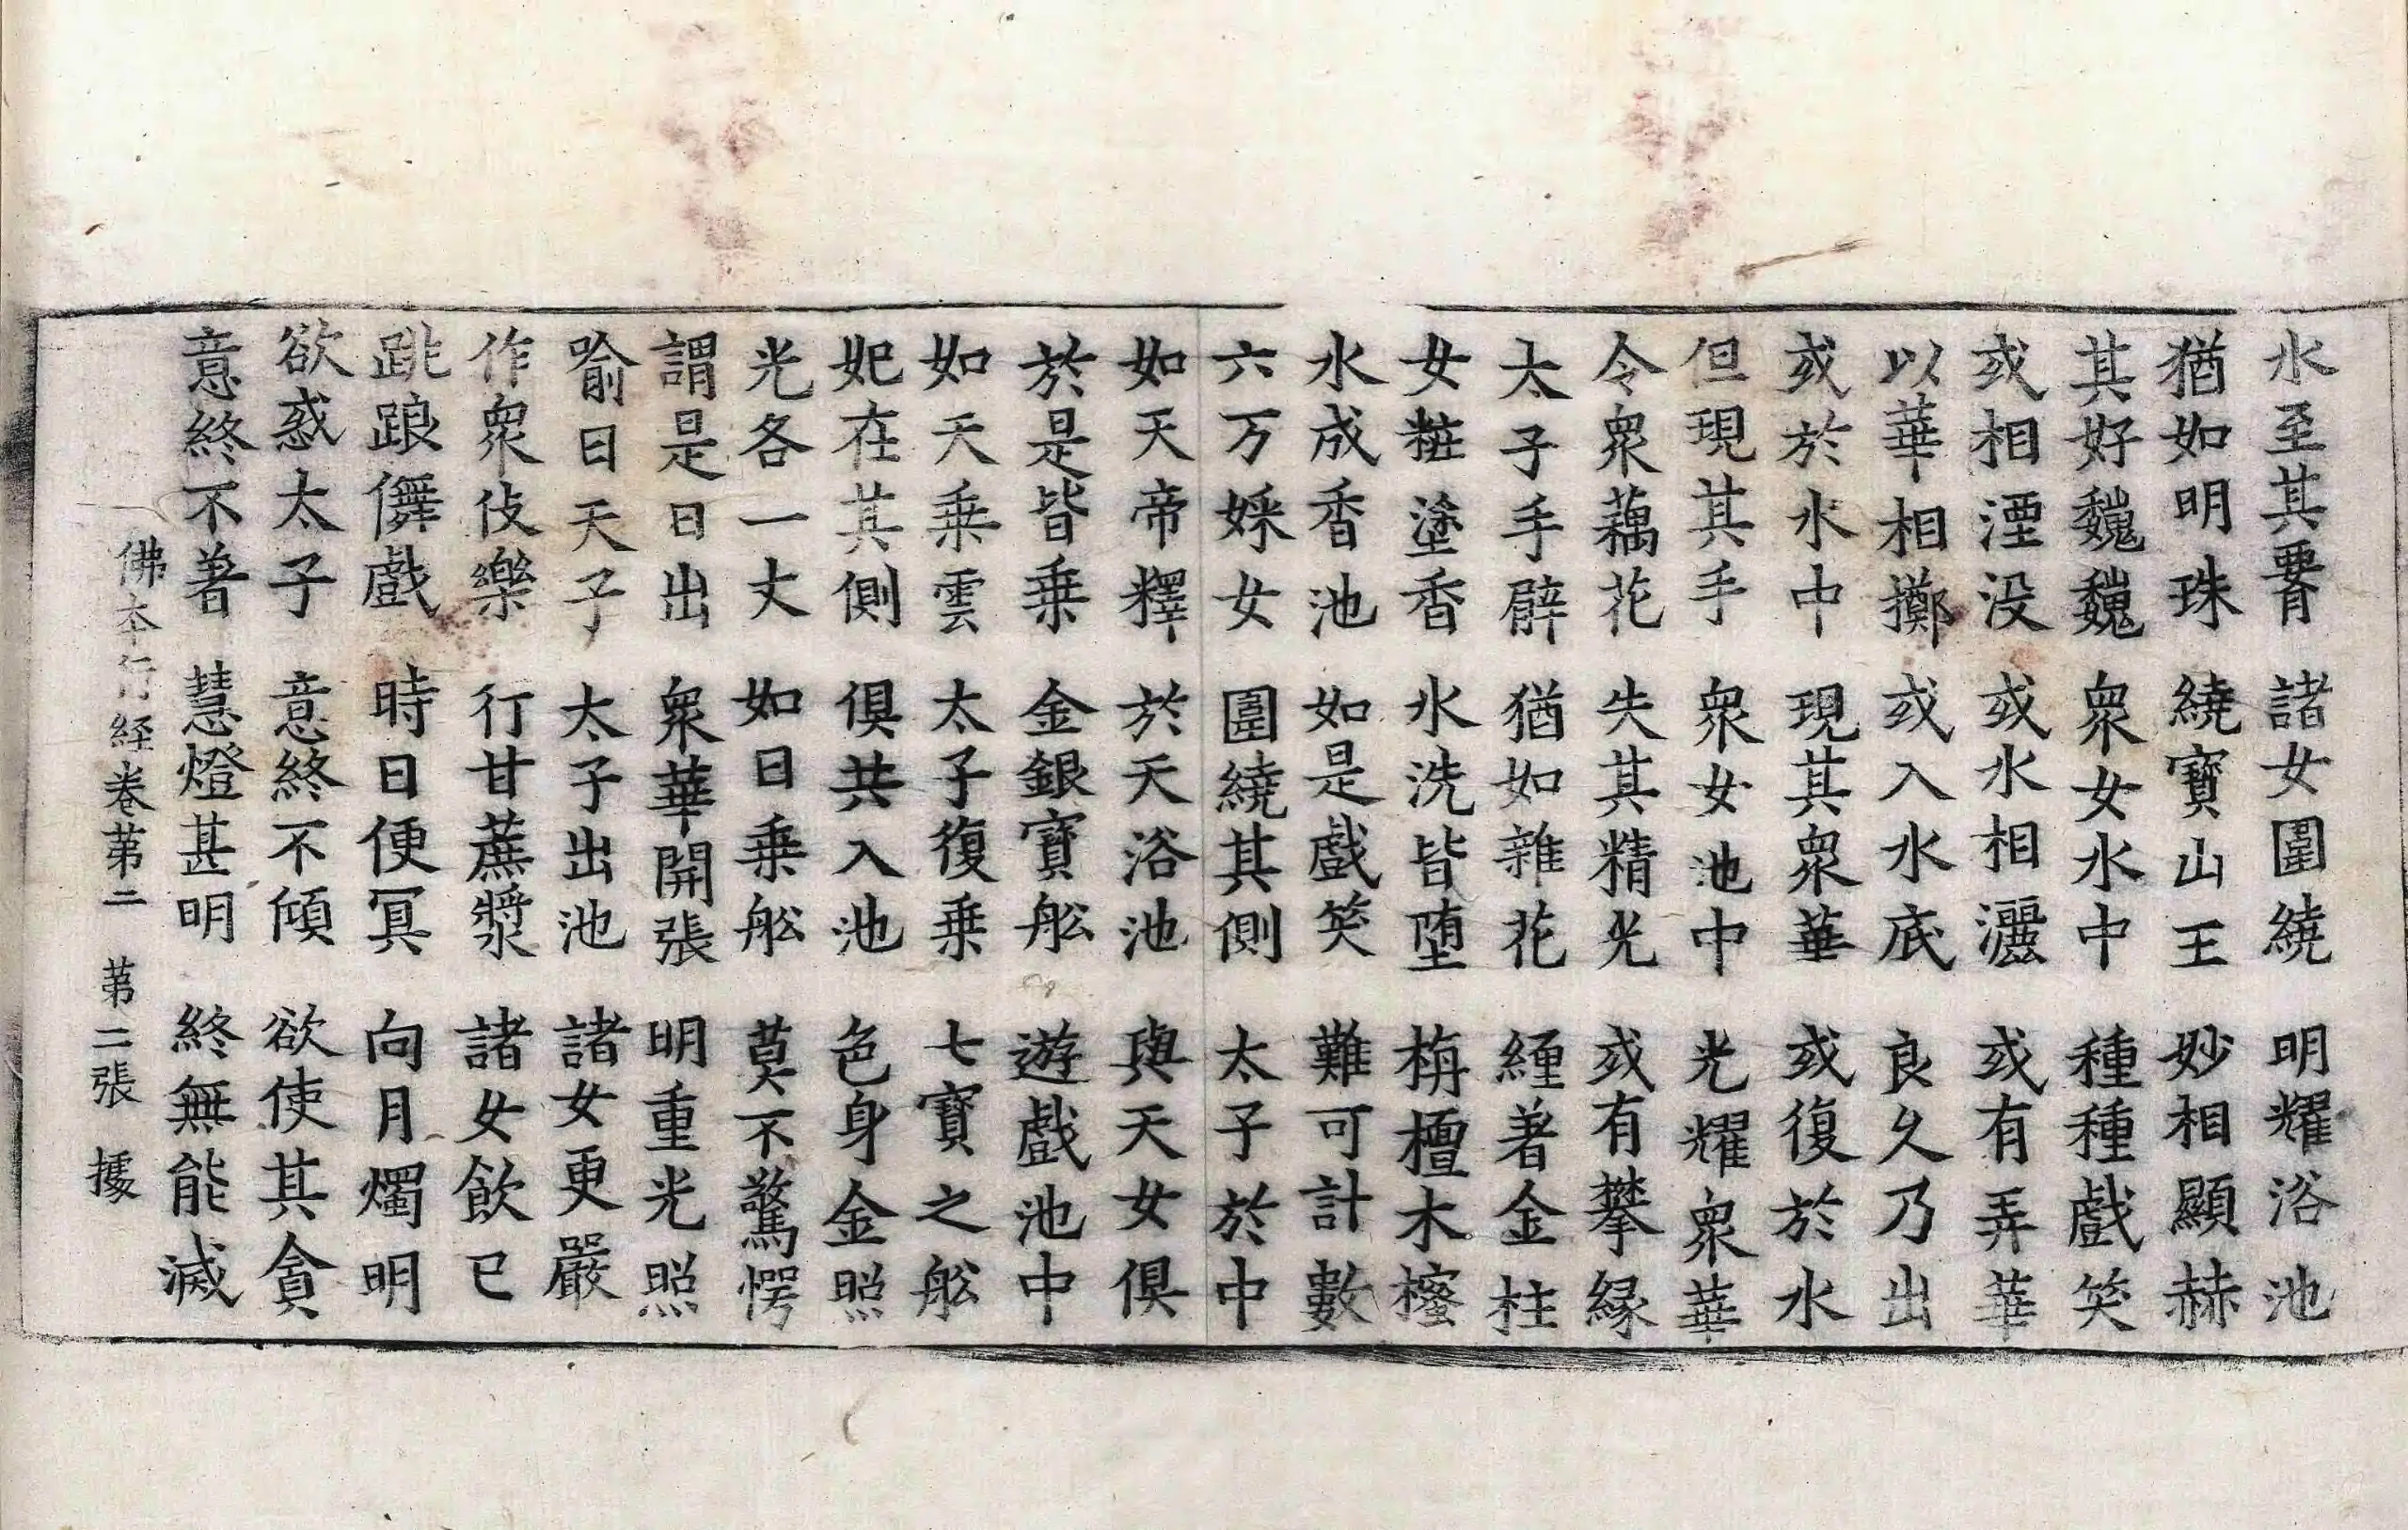 水至其𦝫 諸女圍繞 明耀浴池
猶如明珠 繞寶山王 妙相顯赫
其好巍巍 衆女水中 種種戲笑
或相湮没 或水相灑 或有弄華
以華相擲 或入水底 良久乃出
或於水中 現其衆華 或復於水
但現其手 衆女池中 光耀衆華
令衆藕花 失其精光 或有攀緣
太子手臂 猶如雜花 纏著金柱
女粧塗香 水洗皆墮 栴檀木櫁
水成香池 如是戲笑 難可計數
六万婇女 圍繞其側 太子於中
如天帝釋 於天浴池 與天女俱
於是皆乗 金銀寶舩 遊戲池中
如天乗雲 太子復乗 七寶之舩
妃在其側 俱共入池 色身金照
光各一丈 如日乗舩 莫不驚愕
謂是日出 衆華開張 明重光照
喻日天子 太子出池 諸女更嚴
作衆伎樂 行甘蔗漿 諸女飲已
跳踉儛戲 時日便冥 向月燭明
欲惑太子 意終不傾 欲使其貪
意終不著 慧燈甚明 終無能滅
佛本行経卷苐二 苐二張 據